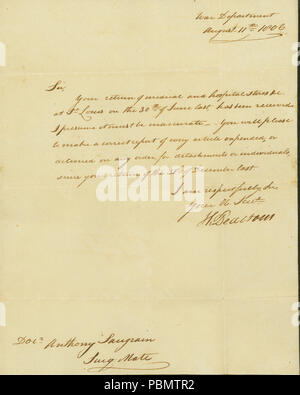 War Department
August 11th 1806
Sir,
Your return of medicine and hospital stores &c
at St Louis on the 30th of June last has been received
I presume it must be inaccurate – You will please
to make a correct report of every article expended, or
delivered on any order for detachments or individuals,
since your return of the 31 of December last
I am respectfully Sir
Your Ob Servt
H Dearborn
Doct. Anthony Saugrain
Surg Mate
alamy
Image ID: PBMTR2
www.alamy.com